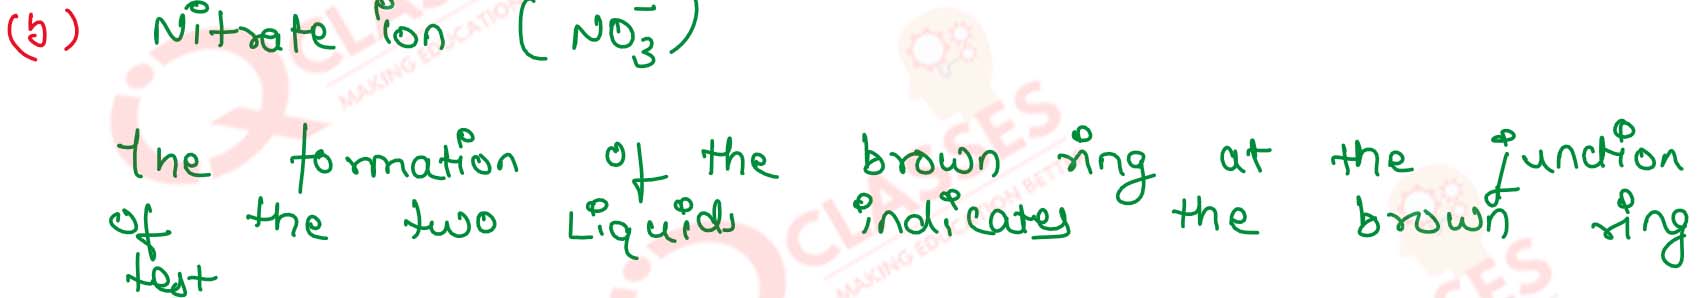 (5) Nitrate ion (NO₃⁻)
The formation of the brown ring at the junction
of the two Liquids indicates the brown ring
test
CLASSES
MAKING EDUCATION
CLASSES
MAKING EDUCATION BETT